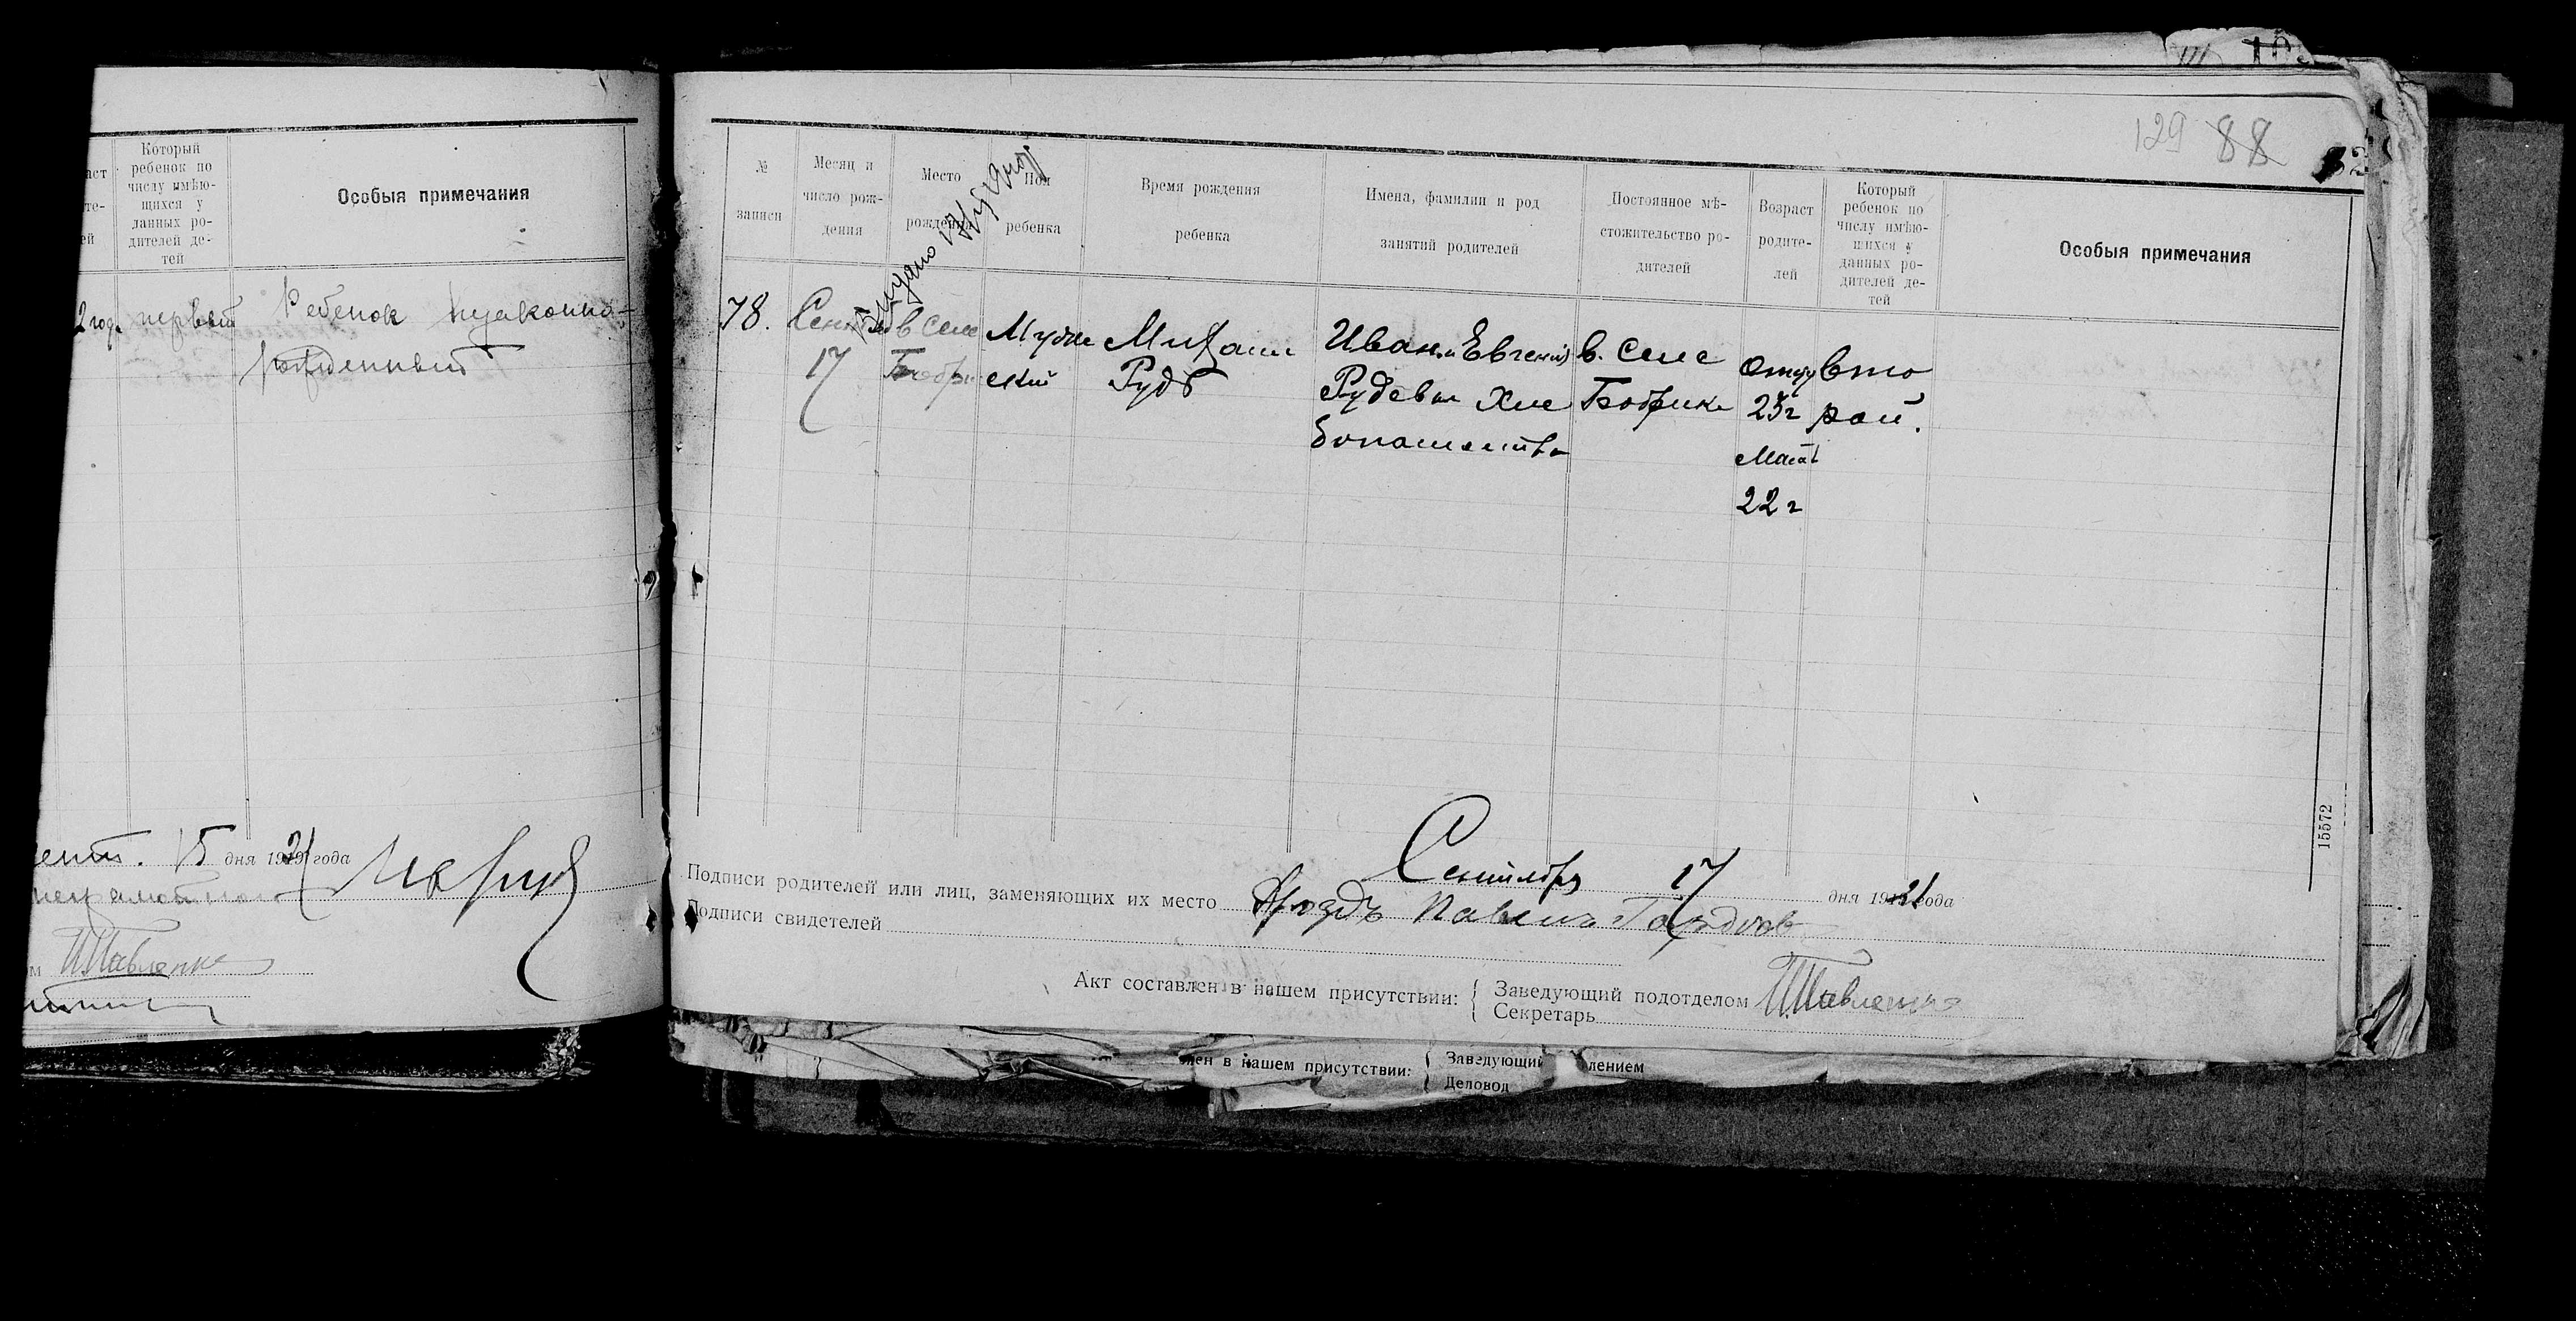 Который
ребенок по
числу имѣю-
щихся у
данных ро-
дителей де-
тей
Особыя примечания
2 года
первый
Ребенок
15 дня 1921 года
129 88
№
записи
Месяц и
число рож-
дения
Место
рождения
Пол
ребенка
Время рождения
ребенка
Имена, фамилии и род
занятий родителей
Постоянное мѣ-
стожительство ро-
дителей
Возраст
родите-
лей
Который
ребенок по
числу имѣю-
щихся у
данных ро-
дителей де-
тей
Особыя примечания
78.
17
в селе
Бобри
Муже
ский
Михаил
Рудь
Иван и Евгений
Рудевы Хле
бопашества
в. селе
Бобрике
отцу
23 г
Мат
22 г
вто
рой.
15572
Сентября 17 дня 1921 года
Подписи родителей или лиц, заменяющих их место
Подписи свидетелей
Акт составлен в нашем присутствии:
Заведующий подотделом
Секретарь
лен в нашем присутствии:
Заведующий
лением
Деловод